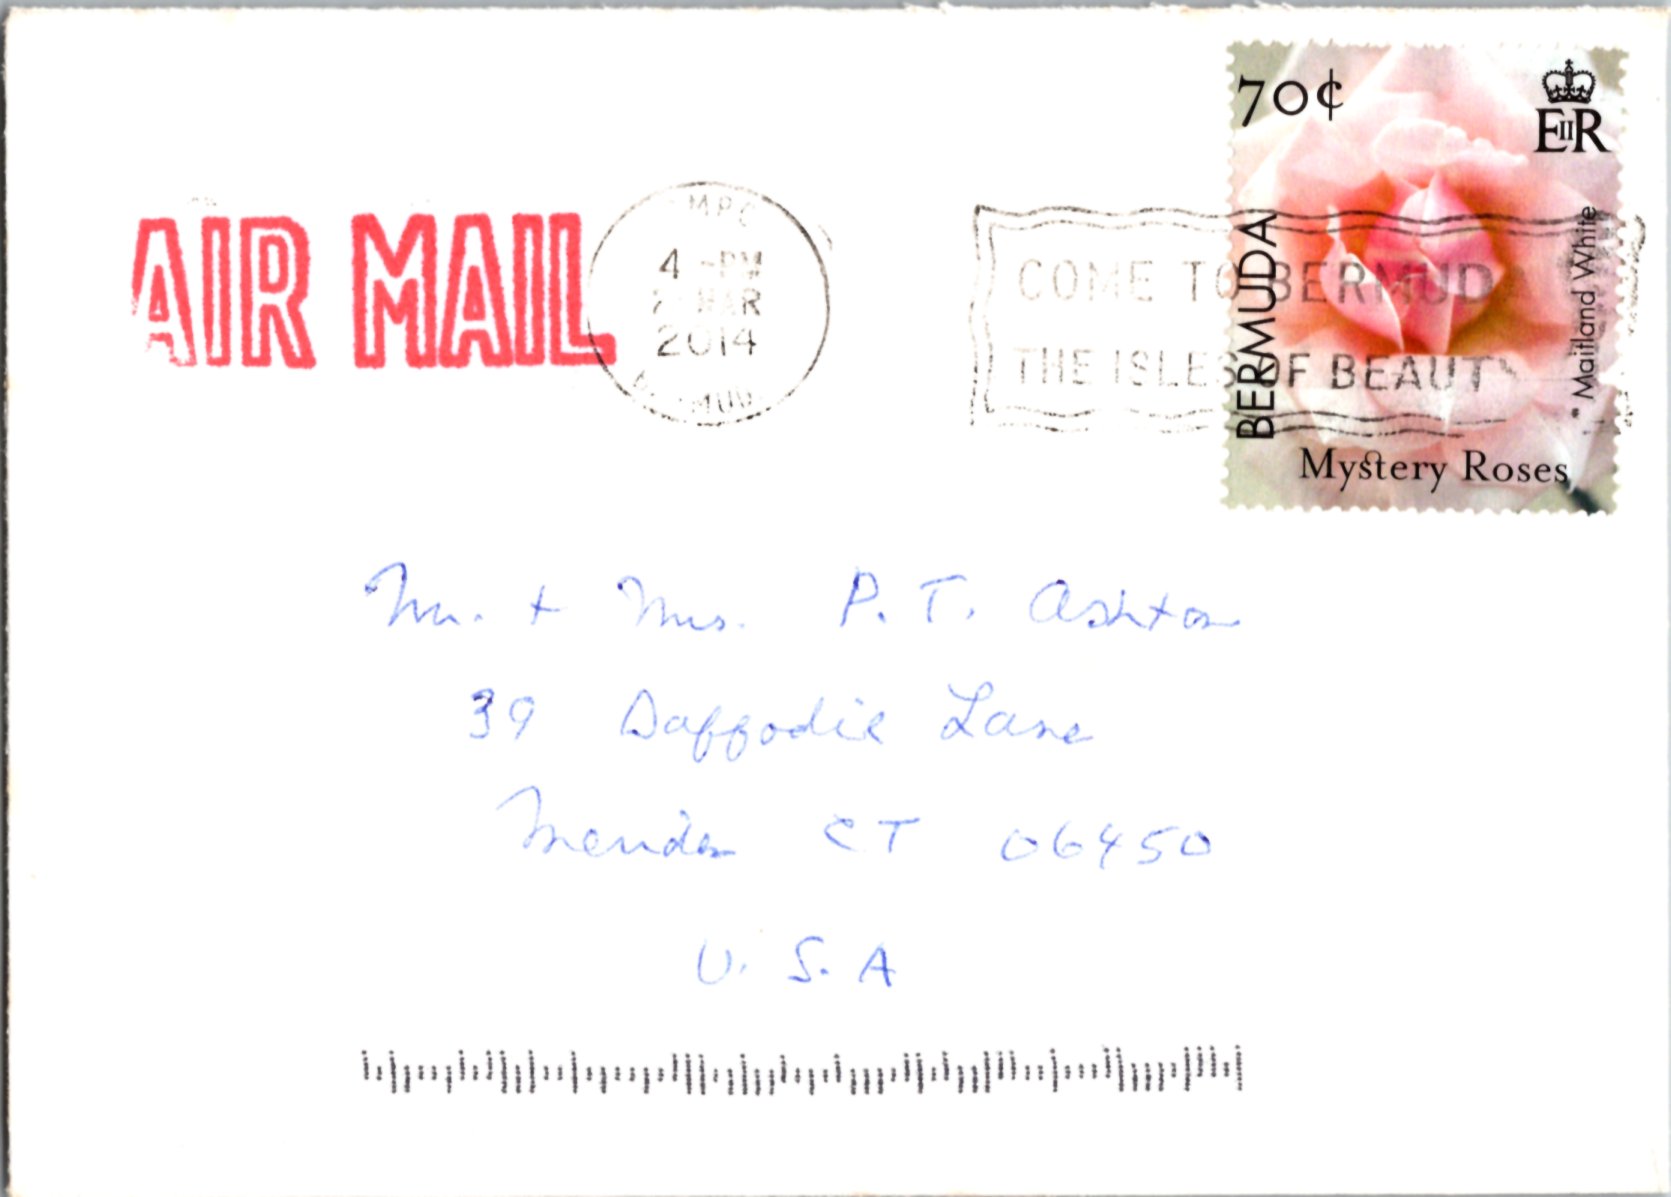 70¢
EIIR
BERMUDA
Maitland White
Mystery Roses
AIR MAIL
MPC
4 -PM
MAR
2014
COME TO BERMUDA
THE ISLES OF BEAUTY
Mr. + Mrs. P. T. Ashton
39 Daffodil Lane
Meriden CT 06450
U. S. A